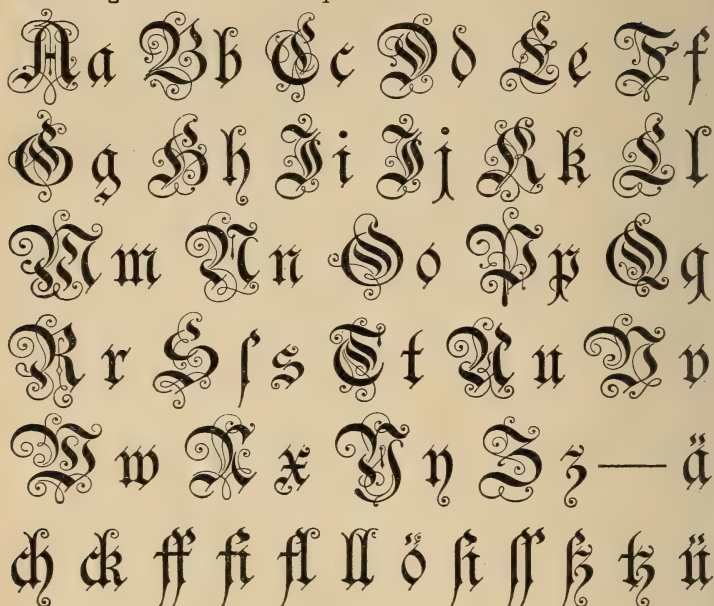 Aa Bb Cc Dd Ee Ff
Gg Hh Ii Jj Kk Ll
Mm Nn Oo Pp Qq
Rr Sſs Tt Uu Vv
Ww Xx Yy Zz — ä
ch ck ff fi fl ll ö ſi ſſ ß tz ü